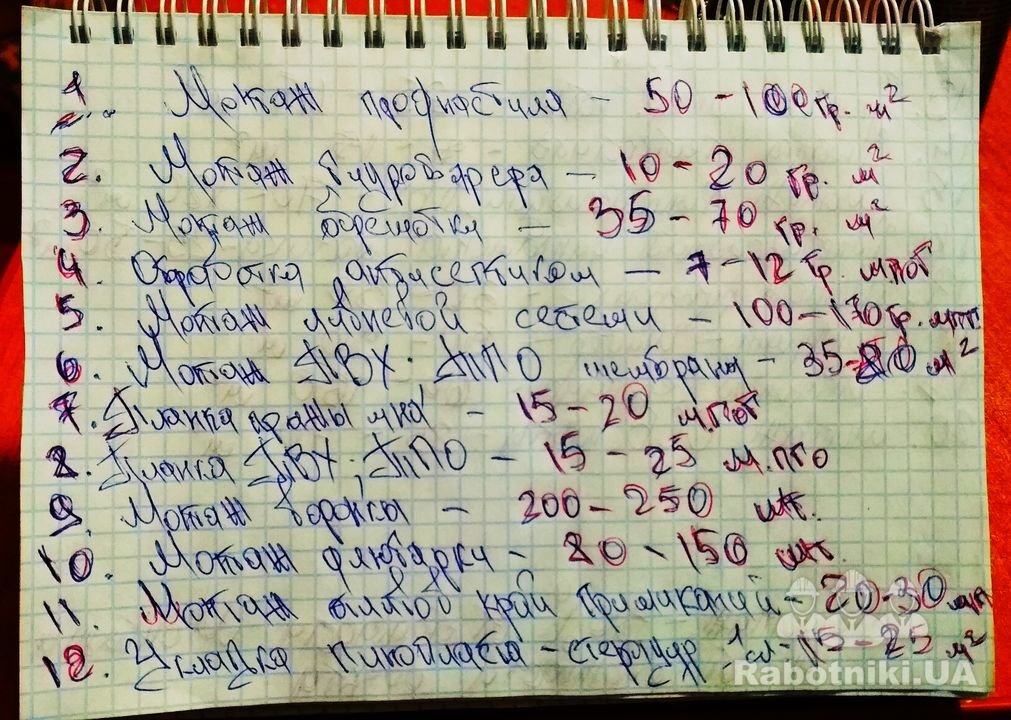 1. Монтаж профнастила - 50 - 100 гр. м²
2. Монтаж гидробарера - 10 - 20 гр. м²
3. Монтаж обрешотки - 35 - 70 гр. м²
4. Обработка антисептиком - 7 - 12 гр. м.пог
5. Монтаж ливневой системи - 100 - 170 гр. мпг
6. Монтаж ПВХ. ТПО мембраны - 35 - 80 м²
7. Планка - 15 - 20 м.пог
8. Планка ПВХ; ТПО - 15 - 25 м.пго
9. Монтаж воронки - 200 - 250 шт.
10. Монтаж флюгарки - 80 - 150 шт.
11. Монтаж край примиканий - 20 - 30 мп
12. Укладка пинопласта - стеродур 1сл - 15 - 25 м²
Rabotniki.UA